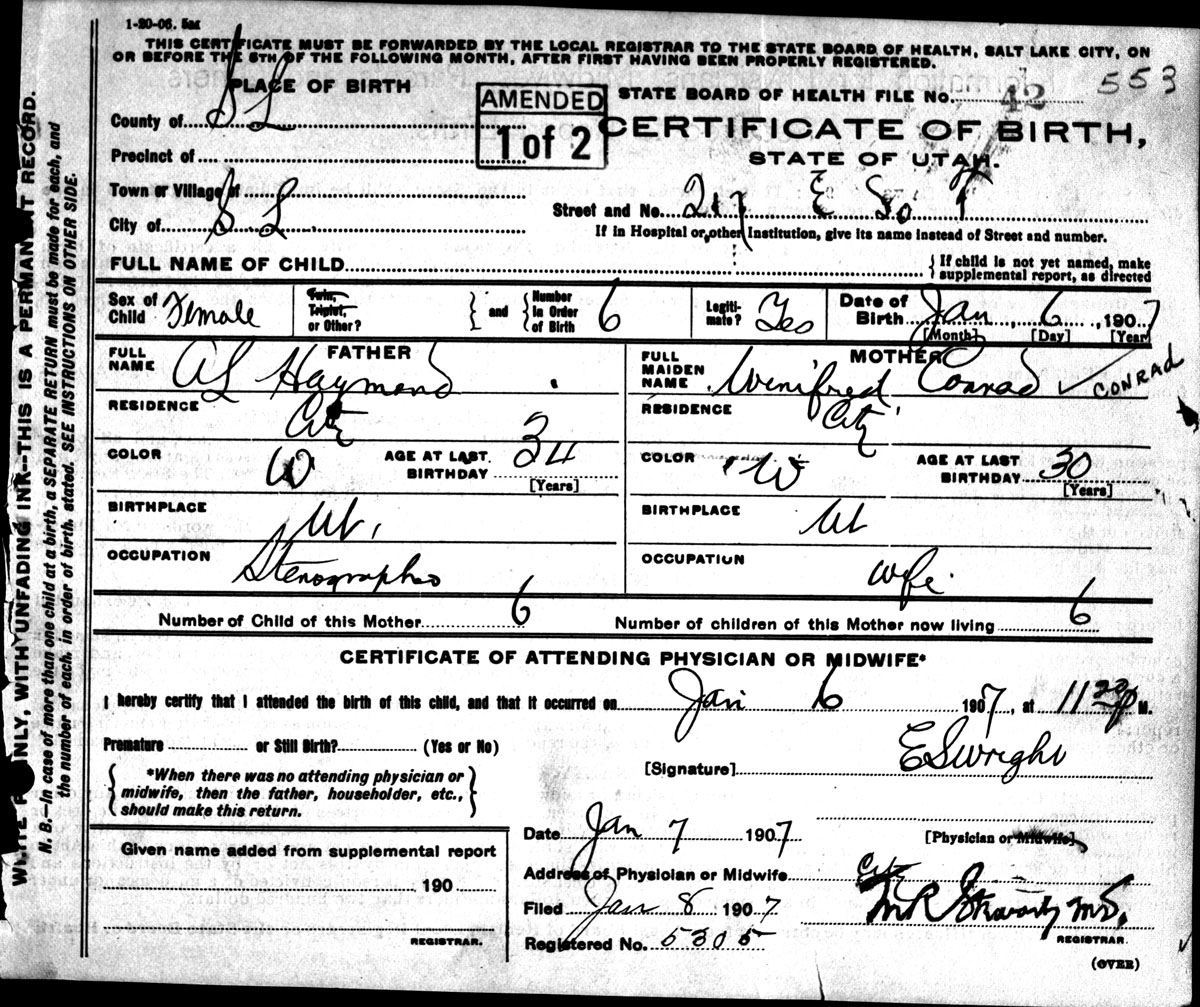 1-20-06. 5m
THIS CERTIFICATE MUST BE FORWARDED BY THE LOCAL REGISTRAR TO THE STATE BOARD OF HEALTH, SALT LAKE CITY, ON
OR BEFORE THE 5TH OF THE FOLLOWING MONTH, AFTER FIRST HAVING BEEN PROPERLY REGISTERED.
PLACE OF BIRTH
AMENDED
1 of 2
STATE BOARD OF HEALTH FILE No. 42 553
County of S L
CERTIFICATE OF BIRTH,
Precinct of
STATE OF UTAH.
Town or Village of
Street and No. 217 E So T
City of S L
If in Hospital or other Institution, give its name instead of Street and number.
FULL NAME OF CHILD
If child is not yet named, make
supplemental report, as directed
Sex of Child Female
Twin, Triplet, or Other?
and
Number In Order of Birth 6
Legitimate? Yes
Date of Birth Jan 6, 1907
[Month] [Day] [Year]
FATHER
FULL NAME A L Haymond
MOTHER
FULL MAIDEN NAME Winifred Conrad CONRAD
RESIDENCE City
RESIDENCE City
COLOR W
AGE AT LAST BIRTHDAY 34
[Years]
COLOR W
AGE AT LAST BIRTHDAY 30
[Years]
BIRTHPLACE Ut.
BIRTHPLACE Ut
OCCUPATION Stenographer
OCCUPATION wife.
Number of Child of this Mother 6
Number of children of this Mother now living 6
CERTIFICATE OF ATTENDING PHYSICIAN OR MIDWIFE*
I hereby certify that I attended the birth of this child, and that it occurred on Jan 6 1907, at 11 20 P M.
Premature or Still Birth? (Yes or No)
[Signature] E S Wright
*When there was no attending physician or
midwife, then the father, householder, etc.,
should make this return.
Date Jan 7 1907
[Physician or Midwife]
Given name added from supplemental report
190
REGISTRAR.
Address of Physician or Midwife City
Filed Jan 8 1907
M R Stewart M D.
Registered No. 5305
REGISTRAR.
(OVER)
WRITE PLAINLY, WITH UNFADING INK—THIS IS A PERMANENT RECORD.
N. B.—In case of more than one child at a birth, a SEPARATE RETURN must be made for each, and
the number of each, in order of birth, stated. SEE INSTRUCTIONS ON OTHER SIDE.